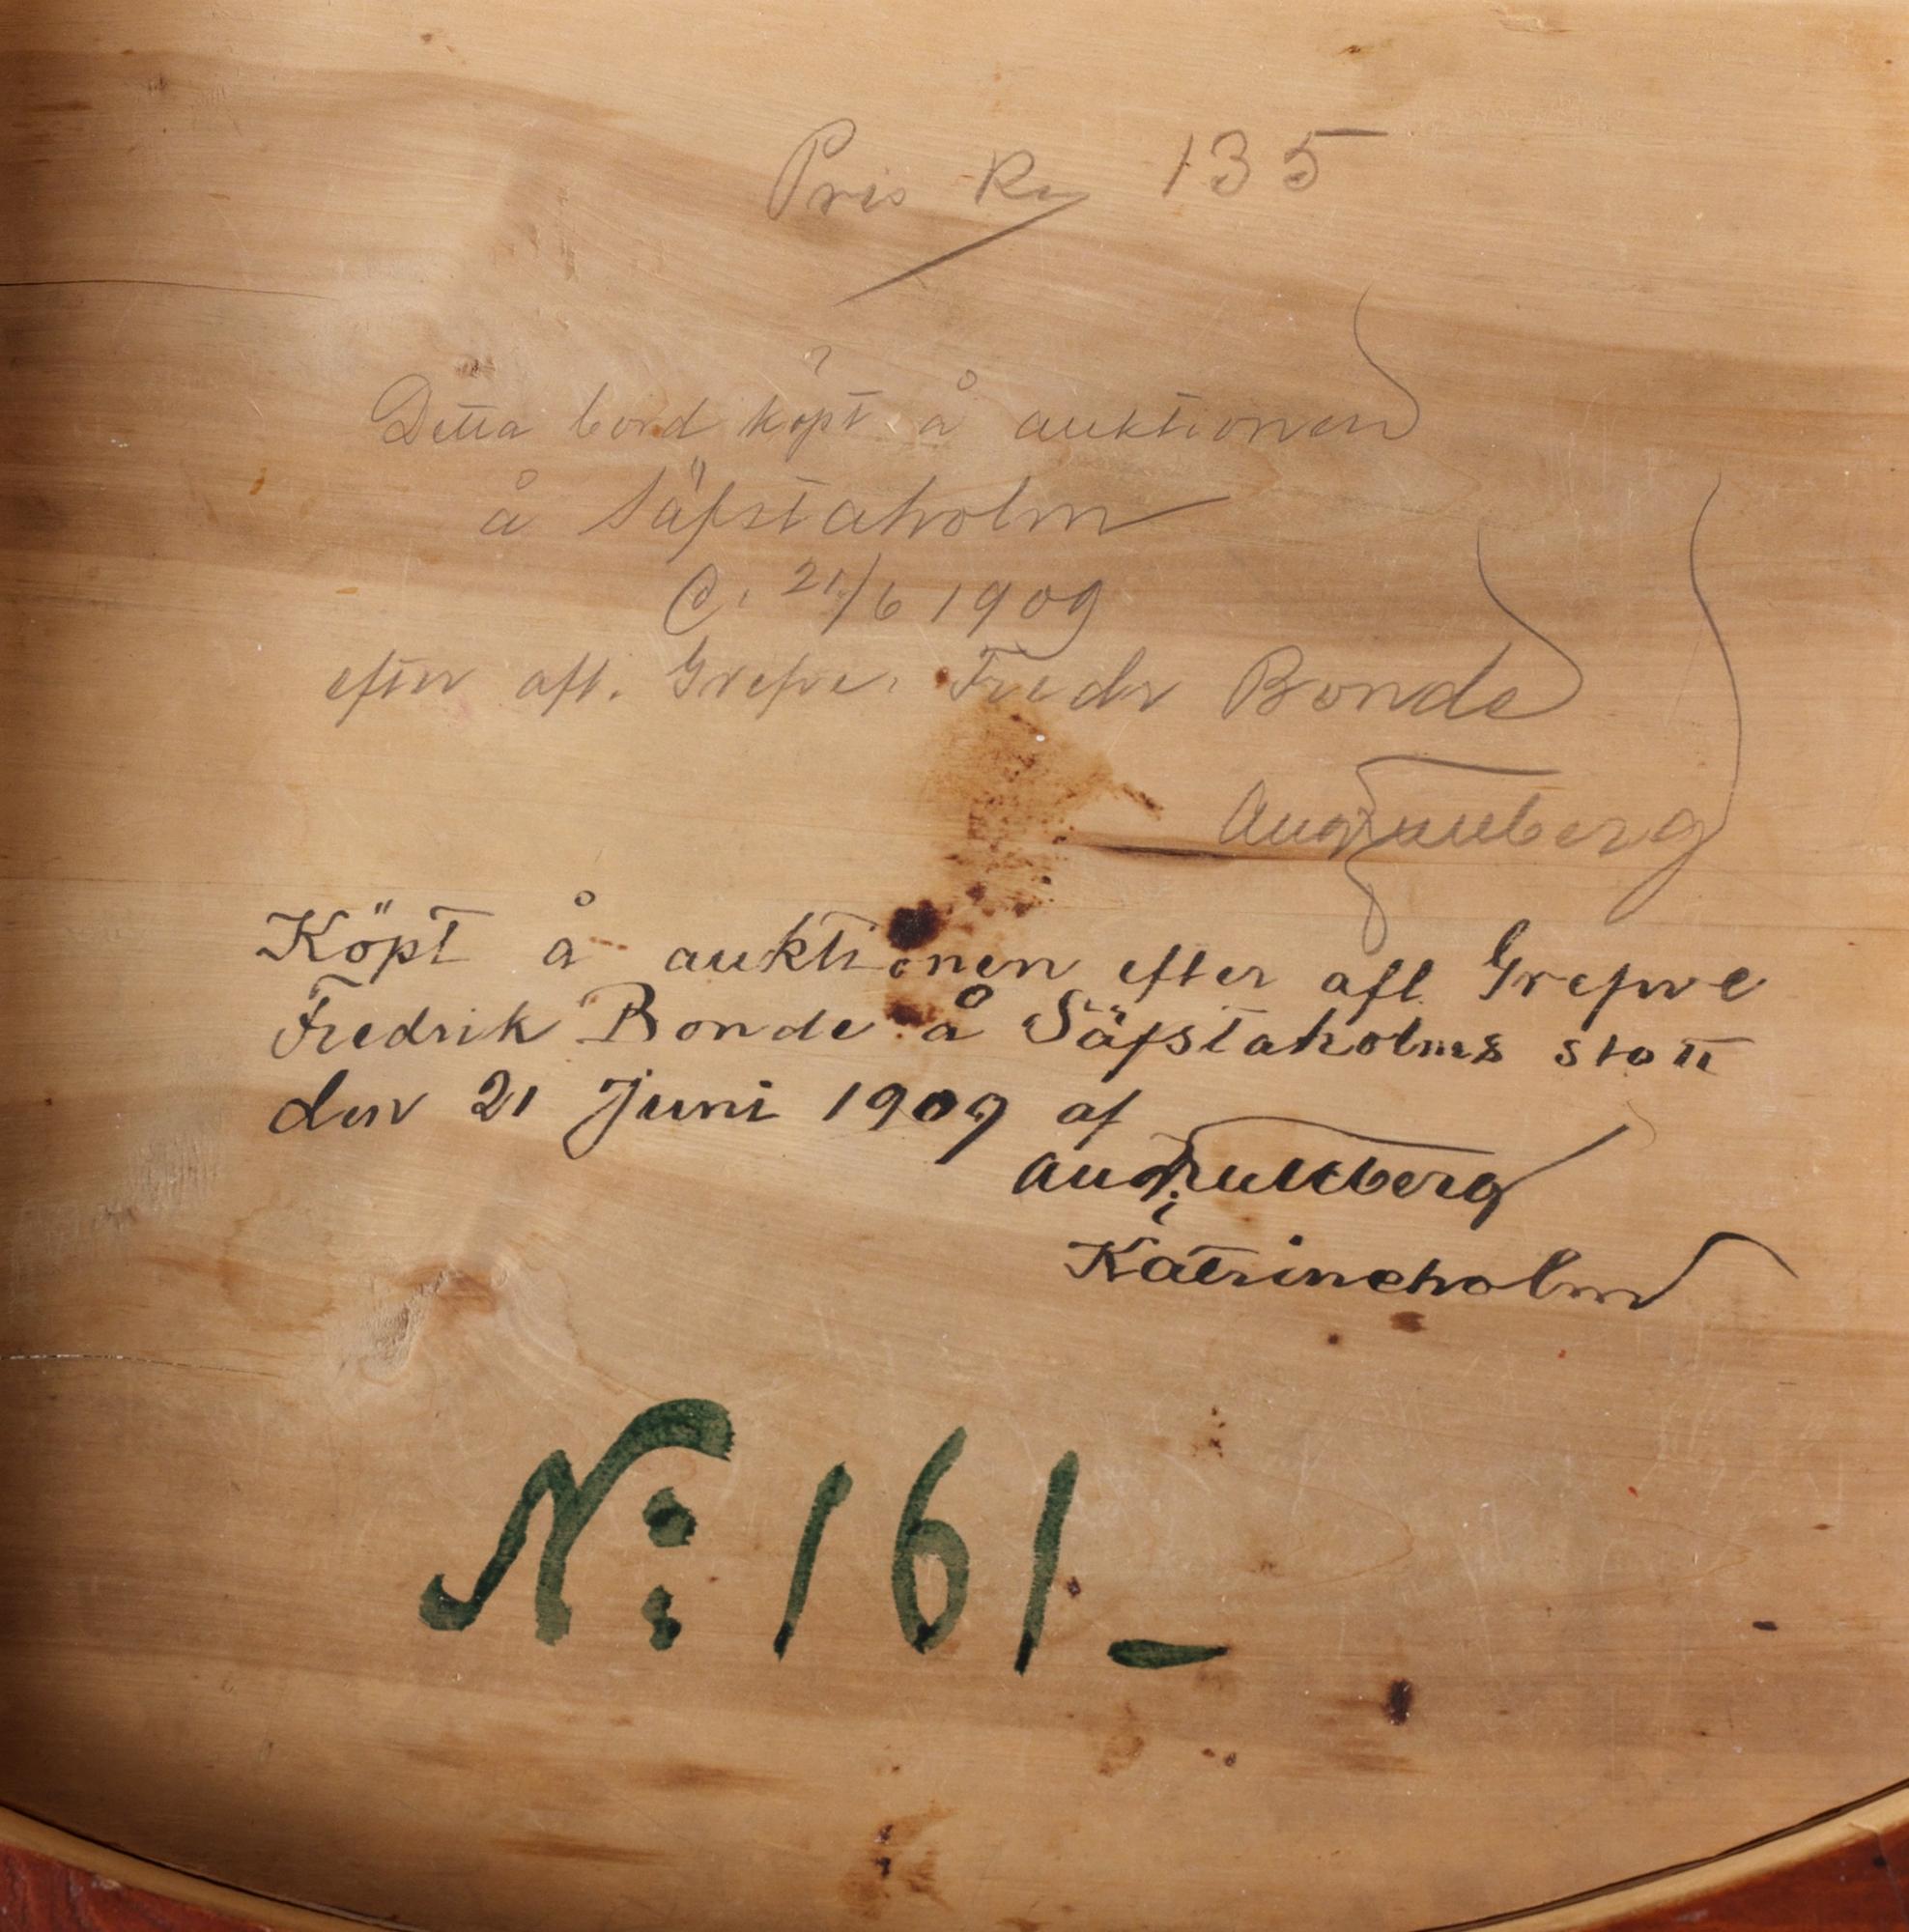 Pris Kr 135
Detta bord köpt å auktionen
å Säfstaholm
d. 21/6 1909
efter afl. Grefve. Fredr Bonde
Aug
Köpt å auktionen efter afl Grefwe
Fredrik Bonde å Säfstaholms slott
den 21 Juni 1909 af
Aug
i
Katrineholm
No: 161_